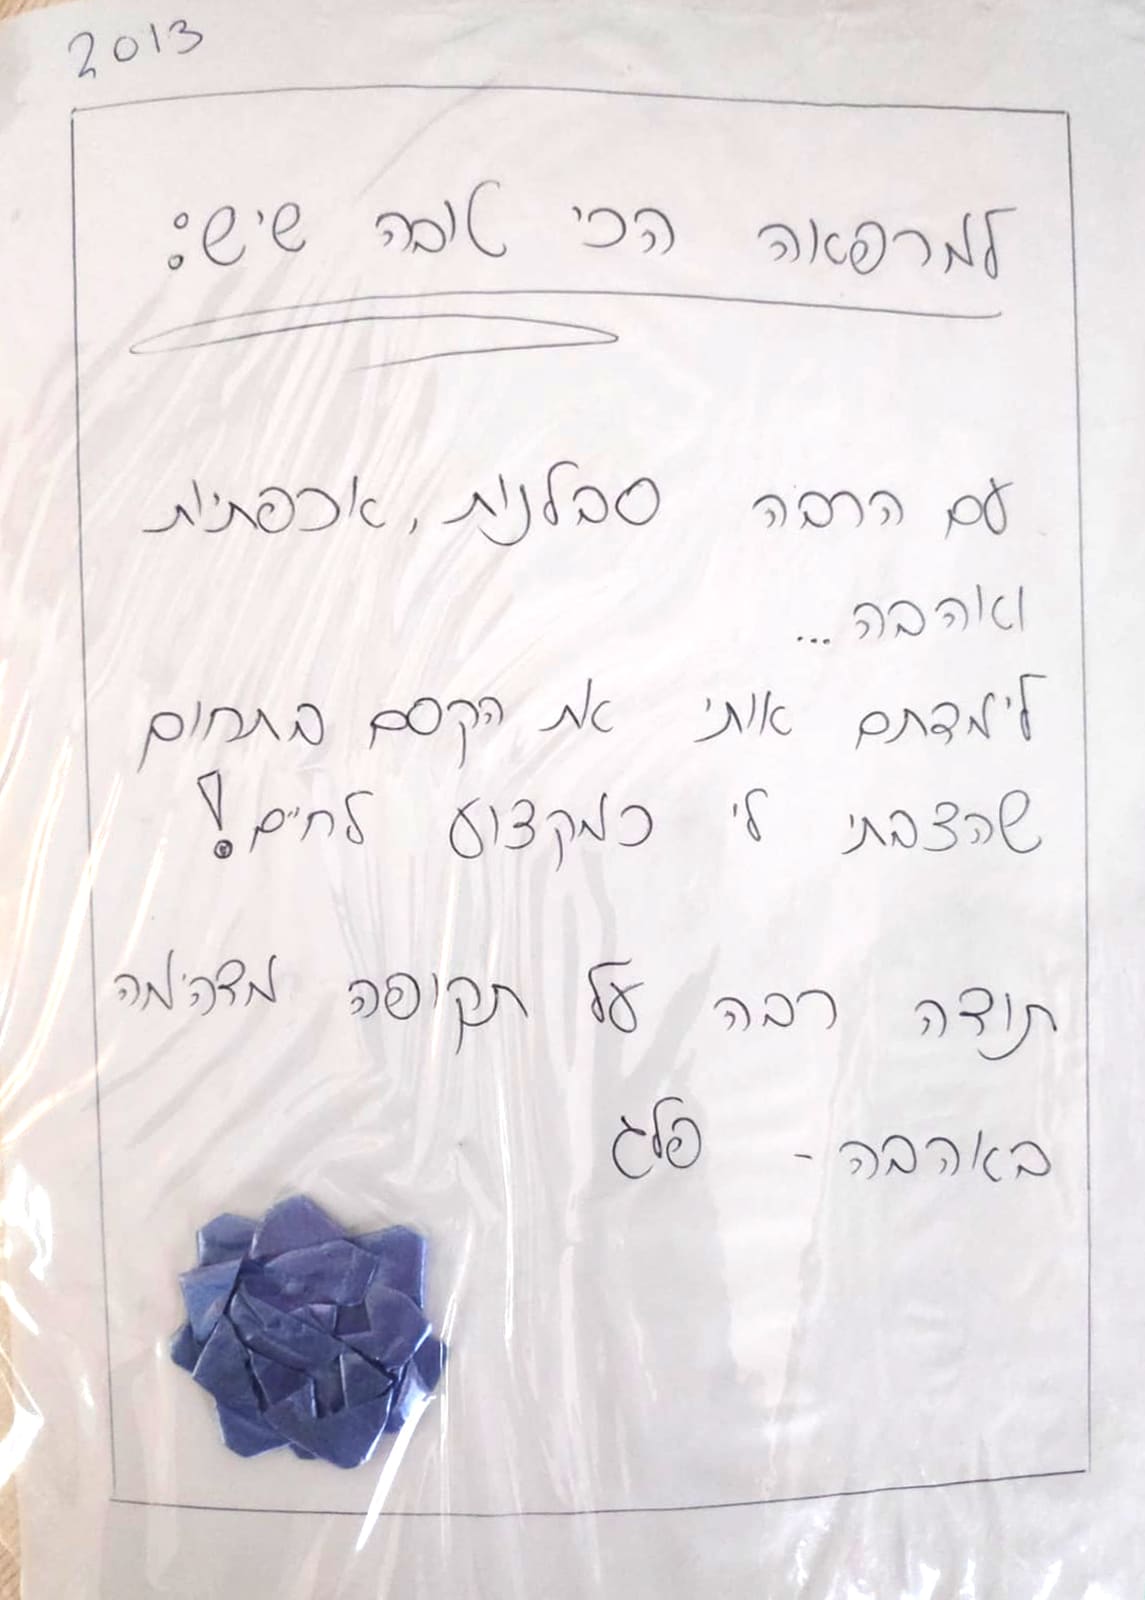 2013
למרפאה הכי טובה שיש:
עם הרבה סבלנות, אכפתיות
ואהבה...
לימדתם אותי את הקסם בתחום
שהצבתי לי כמקצוע לחיים!
תודה רבה על תקופה מדהימה
באהבה- פלג